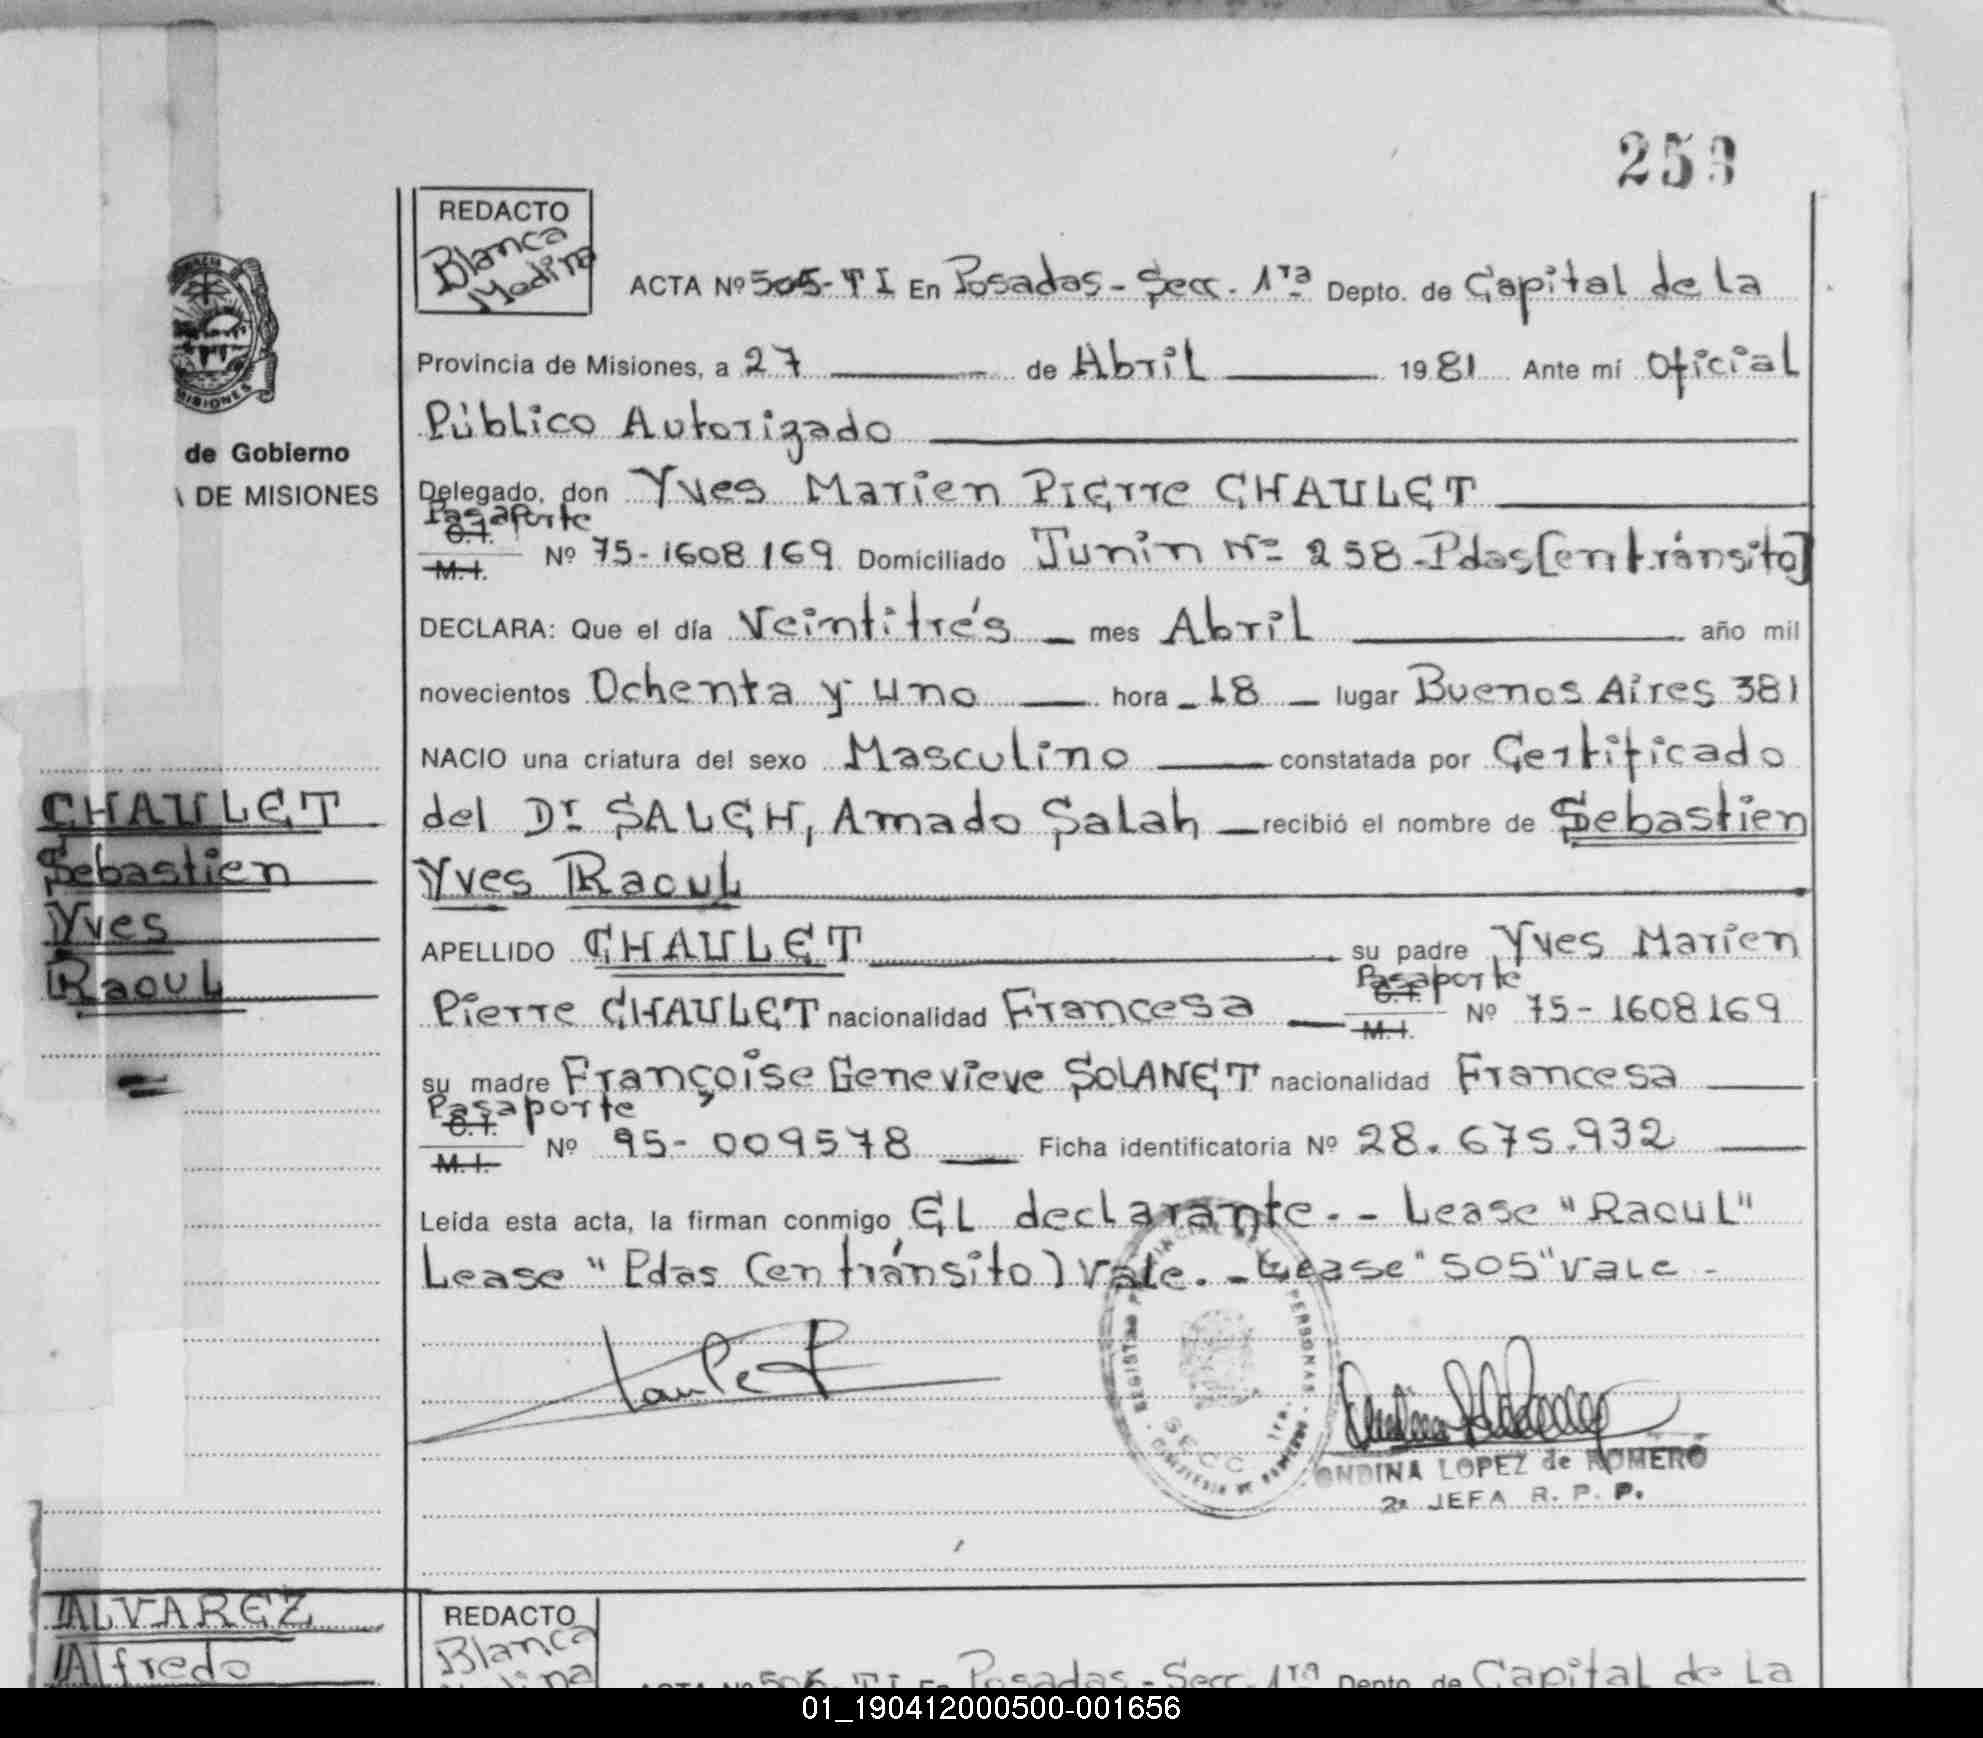 253
REDACTO
Blanca
Medina
ACTA Nº 505-TI En Posadas - Secc. 1ra Depto. de Capital de la
Provincia de Misiones, a 27 de Abril 1981 Ante mí Oficial
Público Autorizado
de Gobierno
DE MISIONES
Delegado, don Yves Marien Pierre CHAULET
Pasaporte
C.I.
M.I.
Nº 75-1608169 Domiciliado Junín Nº 258-Pdas(en tránsito)
DECLARA: Que el día Veintitrés mes Abril año mil
novecientos Ochenta y uno hora 18 lugar Buenos Aires 381
NACIO una criatura del sexo Masculino constatada por Certificado
del Dr SALEH, Amado Salah recibió el nombre de Sebastien
Yves Raoul
CHAULET
Sebastien
Yves
Raoul
APELLIDO CHAULET su padre Yves Marien
Pierre CHAULET nacionalidad Francesa
Pasaporte
C.I.
M.I.
Nº 75-1608169
su madre Françoise Genevieve SOLANET nacionalidad Francesa
Pasaporte
C.I.
M.I.
Nº 95-009578 Ficha identificatoria Nº 28.675.932
Leída esta acta, la firman conmigo EL declarante.- Lease "Raoul"
Lease "Pdas (en tránsito) vale.- Lease "505" vale -
SECC. 1ra.
ONDINA LOPEZ de ROMERO
2ª JEFA R. P. P.
ALVAREZ
Alfredo
REDACTO
Blanca
ACTA Nº 506-TI En Posadas - Secc. 1ra Depto. de Capital de la
01_190412000500-001656